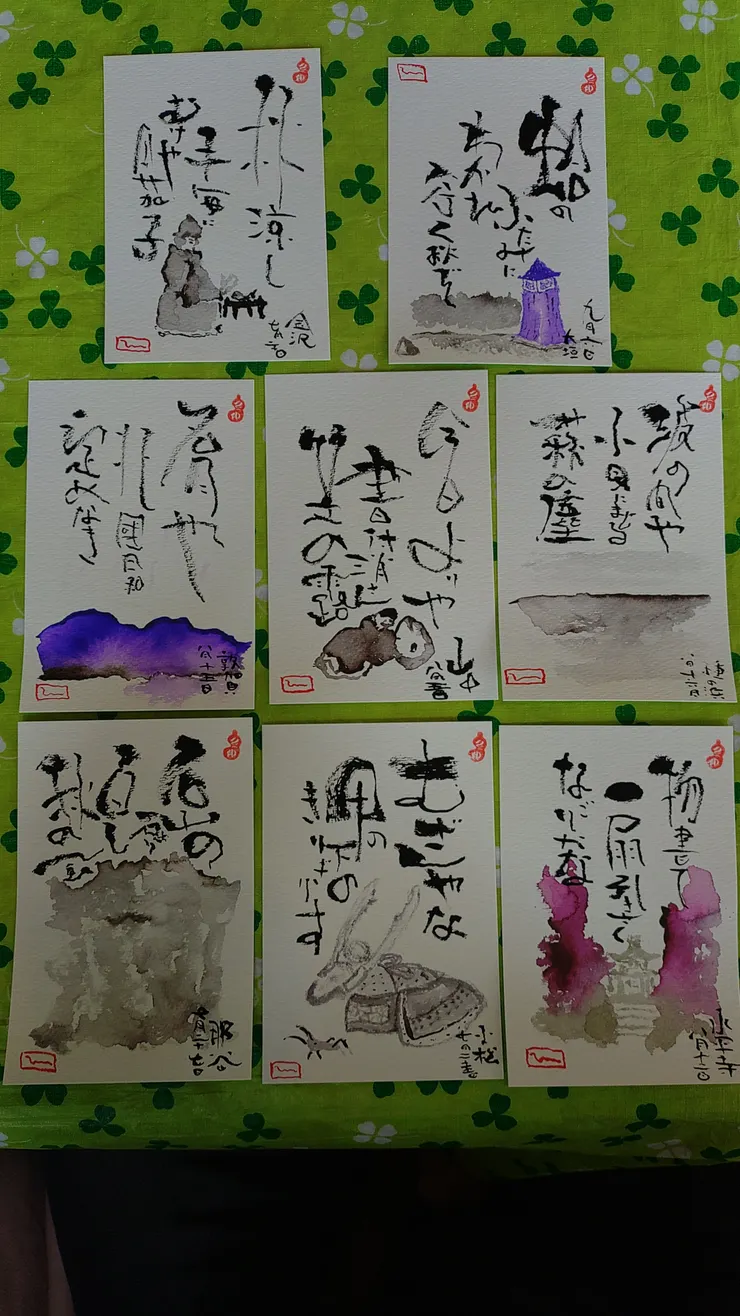 秋涼し
手毎に
むけや
瓜茄子
金沢
蛤の
ふたみに
わかれ
行く秋ぞ
九月六日
大垣
名月や
北国日和
定めなき
敦賀
八月十五日
今日よりや
書付消さん
笠の露
山中
波の間や
小貝にまじる
萩の塵
種の浜
石山の
石より白し
秋の風
那谷
むざんやな
甲の
下の
きりぎりす
小松
物書て
扇引さく
なごりかな
永平寺
八月十二日